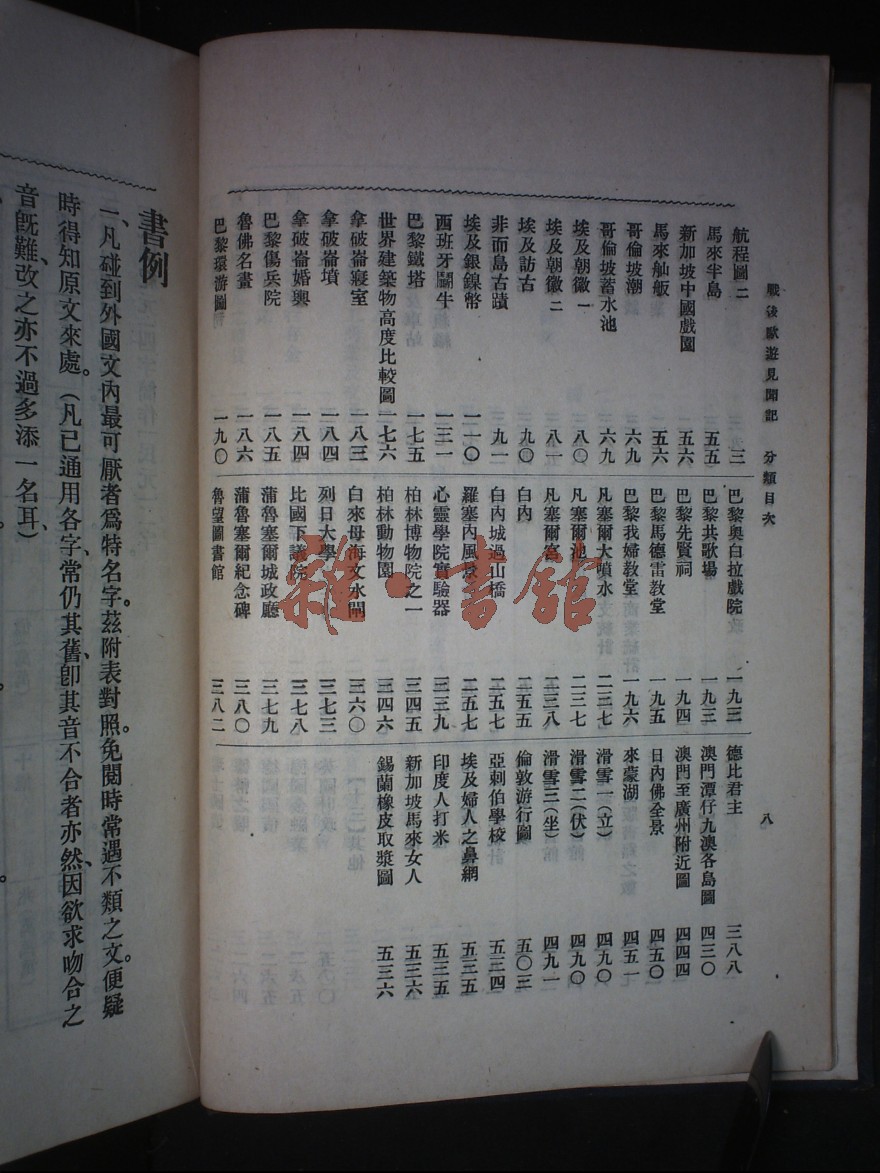 戰後歐遊見聞記　分類目次　八
航程圖二　三
馬來半島　五五
新加坡中國戲園　五六
馬來舢舨　五六
哥倫坡潮　六九
哥倫坡蓄水池　六九
埃及朝徽一　八〇
埃及朝徽二　八一
埃及訪古　九〇
非而島古蹟　九一
埃及銀鎳幣　一一〇
西班牙鬭牛　一三一
巴黎鐵塔　一七五
世界建築物高度比較圖　一七六
拿破崙寢室　一八三
拿破崙墳　一八四
拿破崙婚輿　一八四
巴黎傷兵院　一八五
魯佛名畫　一八六
巴黎環游圖　一九〇
巴黎奧白拉戲院　一九三
巴黎共歌場　一九三
巴黎先賢祠　一九四
巴黎馬德雷教堂　一九五
巴黎我婦教堂　一九六
凡塞爾大噴水　二三七
凡塞爾池　二三七
凡塞爾宮　二三八
白內　二五五
白內城過山橋　二五七
羅塞內風景　二五七
心靈學院實驗器　三三九
柏林博物院之一　三四五
柏林動物園　三四六
白來母海文水閘　三六〇
列日大學　三七三
比國下議院　三七八
蒲魯塞爾城政廳　三七九
蒲魯塞爾紀念碑　三八〇
魯望圖書館　三八二
德比君主　三八八
澳門潭仔九澳各島圖　四三〇
澳門至廣州附近圖　四四四
日內佛全景　四五〇
來蒙湖　四五一
滑雪一（立）　四九〇
滑雪二（伏）　四九〇
滑雪三（坐）　四九一
倫敦游行圖　五〇三
亞剌伯學校　五三四
埃及婦人之鼻網　五三五
印度人打米　五三五
新加坡馬來女人　五三六
錫蘭橡皮取漿圖　五三六
書例
一、凡碰到外國文內最可厭者爲特名字。茲附表對照。免閱時常遇不類之文。便疑
時得知原文來處。（凡已通用各字、常仍其舊、卽其音不合者亦然、因欲求吻合之
音旣難、改之亦不過多添一名耳）
雜·書館